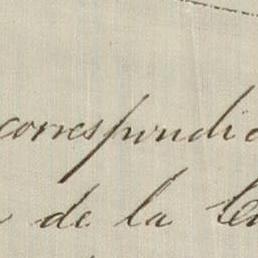 correspondi
de la